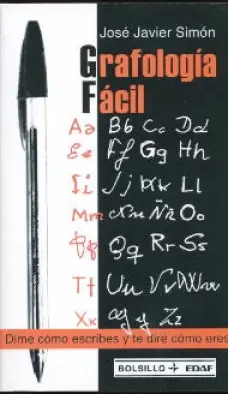 José Javier Simón
Grafología
Fácil
Aa Bb Cc Dd
Ee Ff Gg Hh
Ii Jj Kk Ll
Mm Nn Ññ Oo
Pp Qq Rr Ss
Tt Uu Vv Ww
Xx Yy Zz
Dime cómo escribes y te diré cómo eres
BOLSILLO EDAF